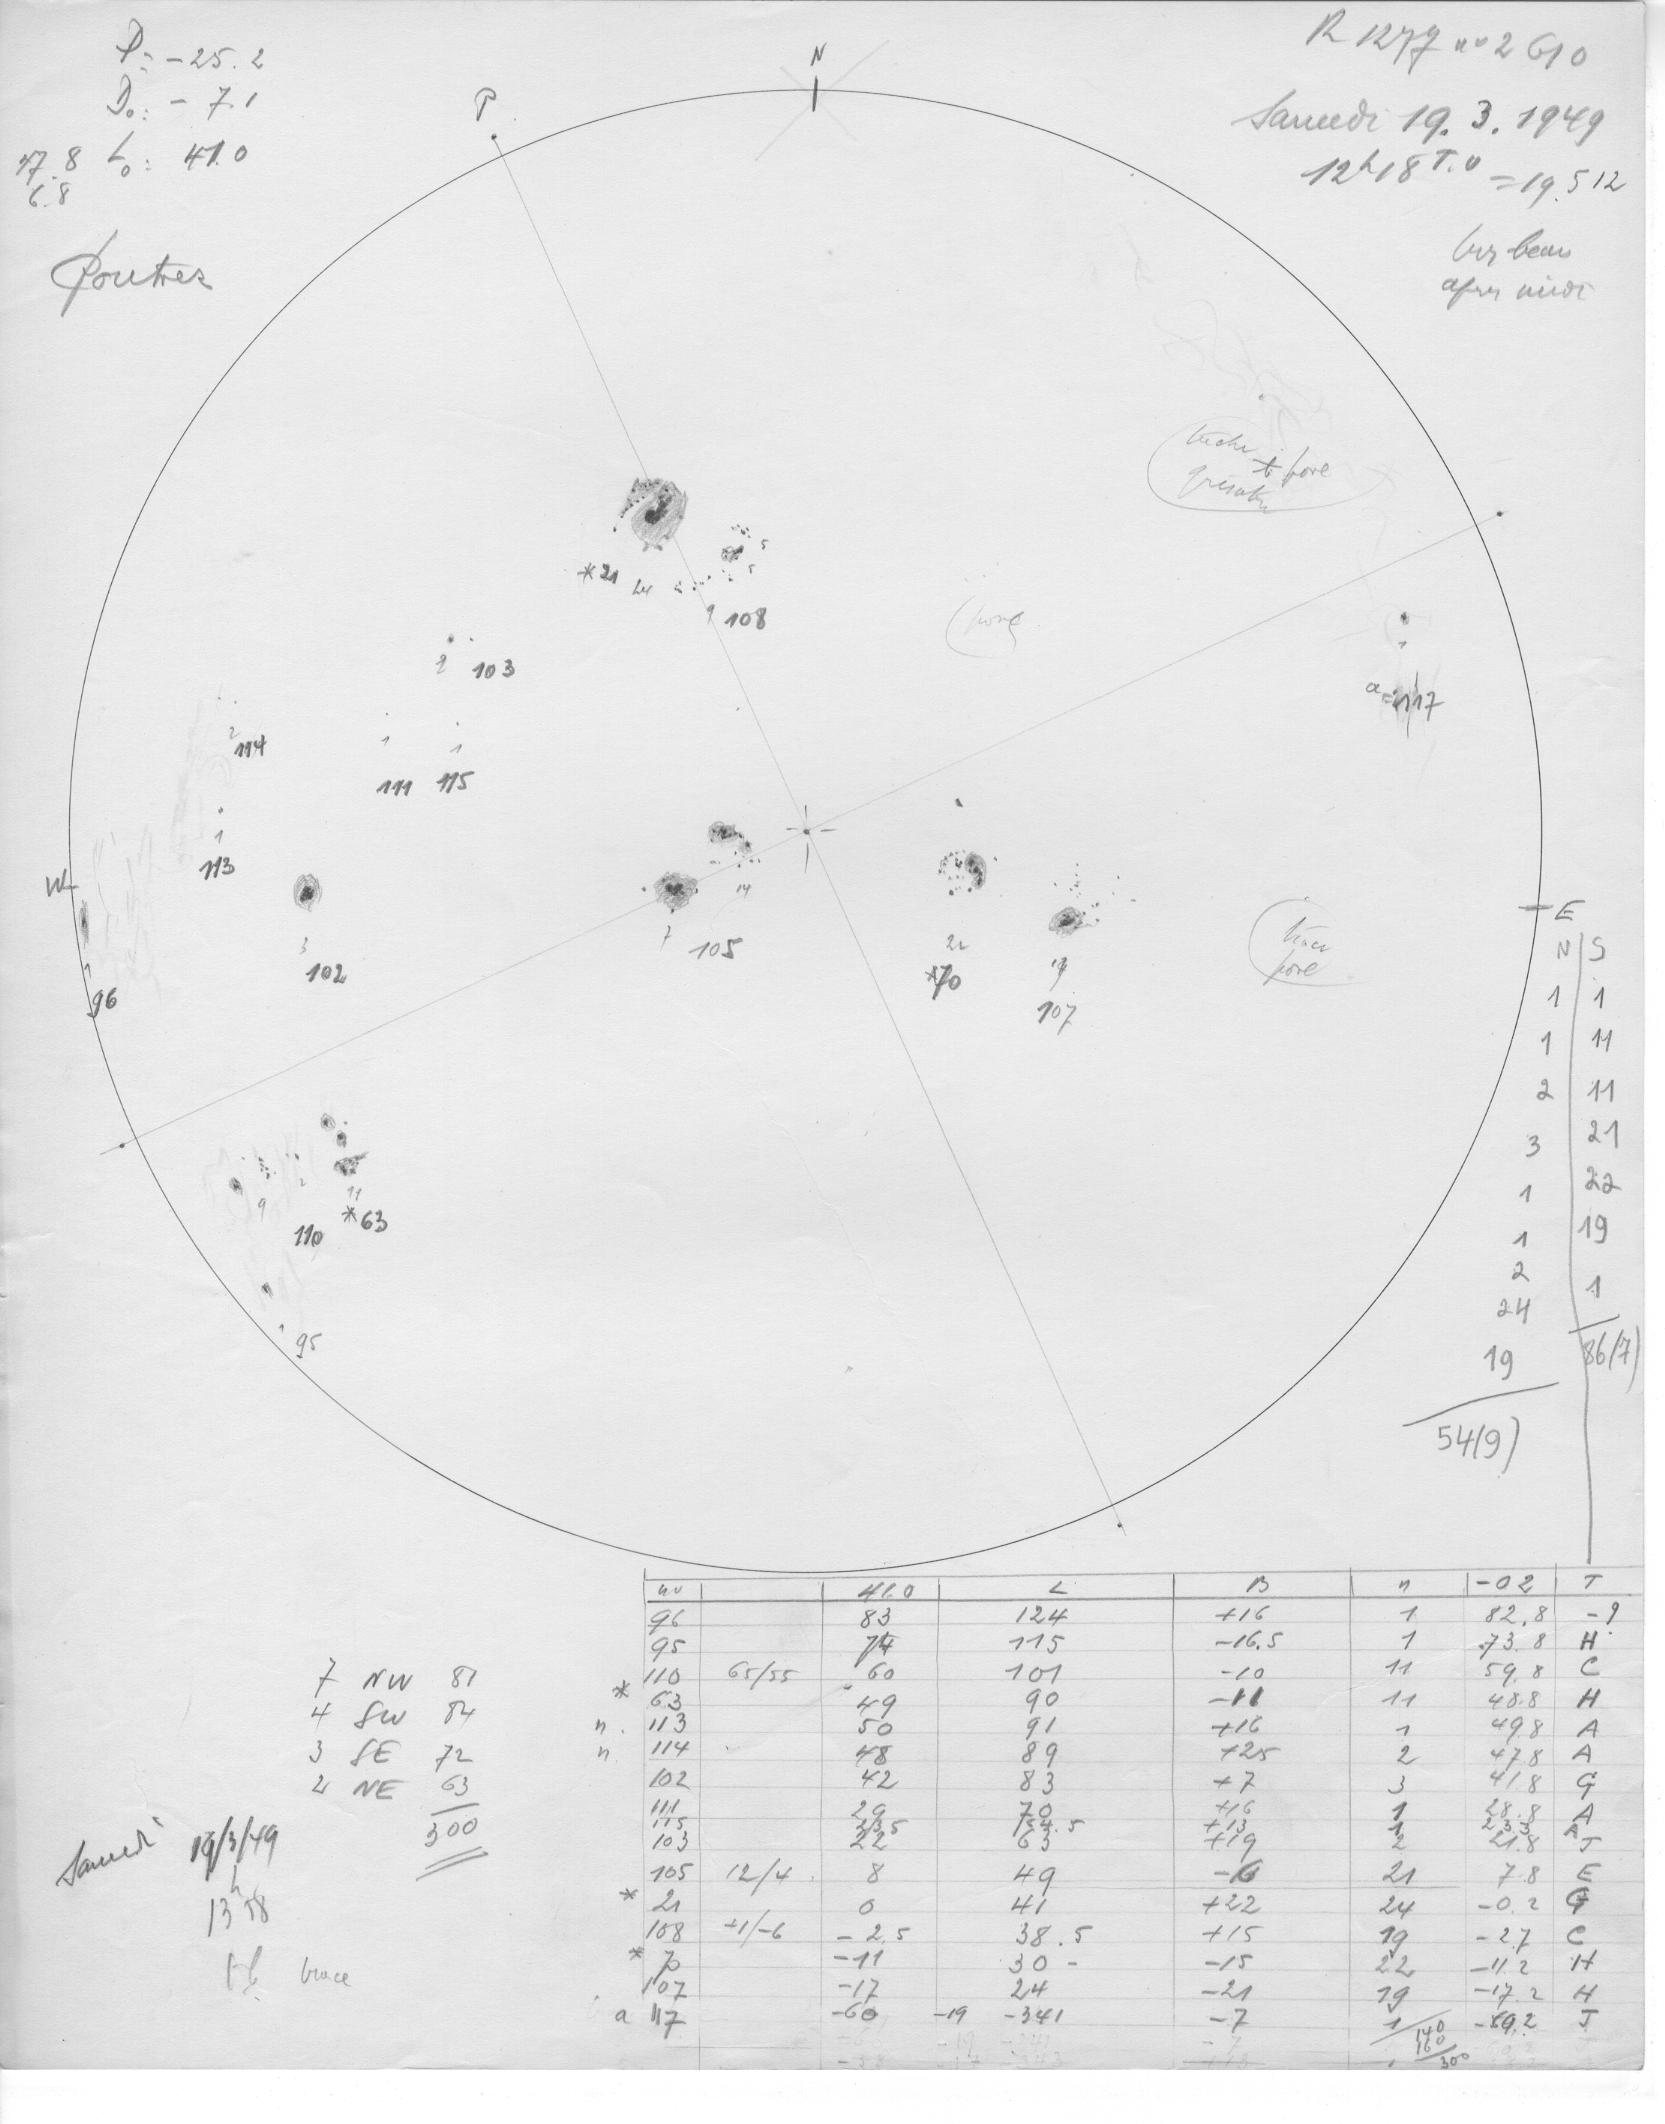 P: -25.2
D₀: - 7.1
47.8 L₀: 41.0
6.8
N
P
R 1277 n° 2610
Samedi 19.3.1949
12h18 T.U = 19.512
après midi
tache + pore
*21 24
5
5
9 108
pore
2 103
1
a=117
2
114
1 1
111 115
1
113
W
96
3
102
7 105
14
22
*70
19
107
pore
E
N S
1 1
1 11
2 11
3 21
1 22
1 19
2 1
24 86(7)
19
54(9)
9 2 11
110 *63
1 95
n° 41.0 L B n -02 T
96 83 124 +16 1 82.8 -?
95 74 115 -16.5 1 73.8 H
110 65/55 60 101 -10 11 59.8 C
* 63 49 90 -11 11 48.8 H
n. 113 50 91 +16 1 49.8 A
n 114 48 89 +25 2 47.8 A
102 42 83 +7 3 41.8 G
111 29 70 +16 1 28.8 A
115 23.5 64.5 +13 1 23.3 A
103 22 63 +19 2 21.8 J
105 12/4 8 49 -6 21 7.8 E
* 21 0 41 +22 24 -0.2 G
108 +1/-6 -2.5 38.5 +15 19 -2.7 C
* 70 -11 30 - -15 22 -11.2 H
107 -17 24 -21 19 -17.2 H
a 117 -60 -19 -341 -7 1 -59.2 J
140
160
300
7 NW 81
4 SW 84
3 SE 72
2 NE 63
300
Samedi 19/3/49